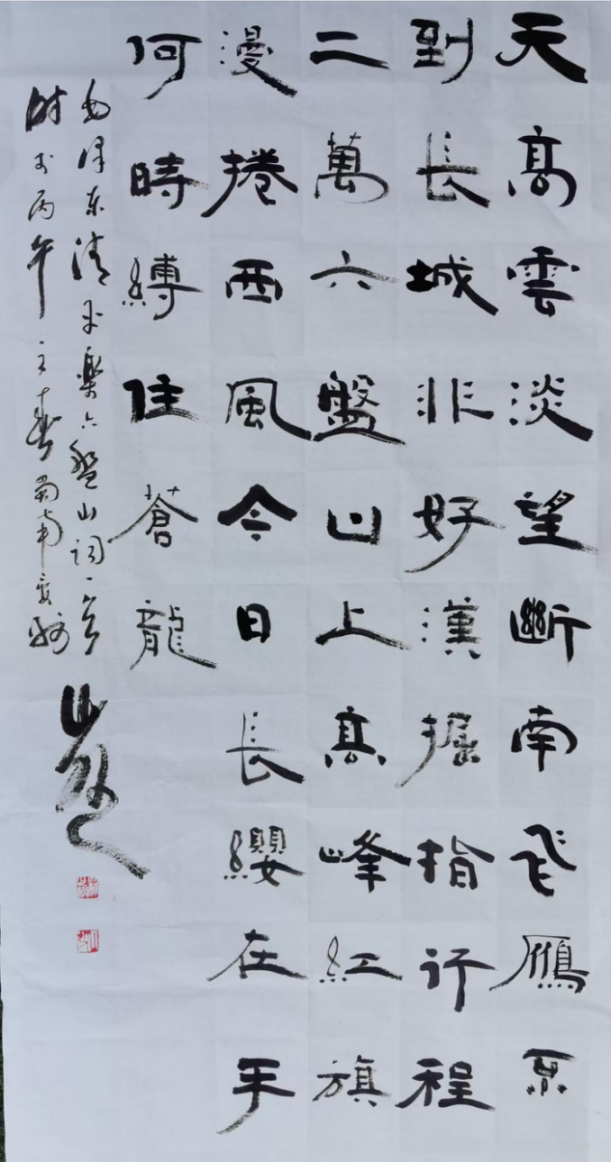 天高雲淡望斷南飛雁不
到長城非好漢掘指行程
二萬六盤山上高峰紅旗
漫捲西風今日長纓在手
何時縛住蒼龍
毛泽东清平樂六盤山詞一首
时于丙午之春蜀南